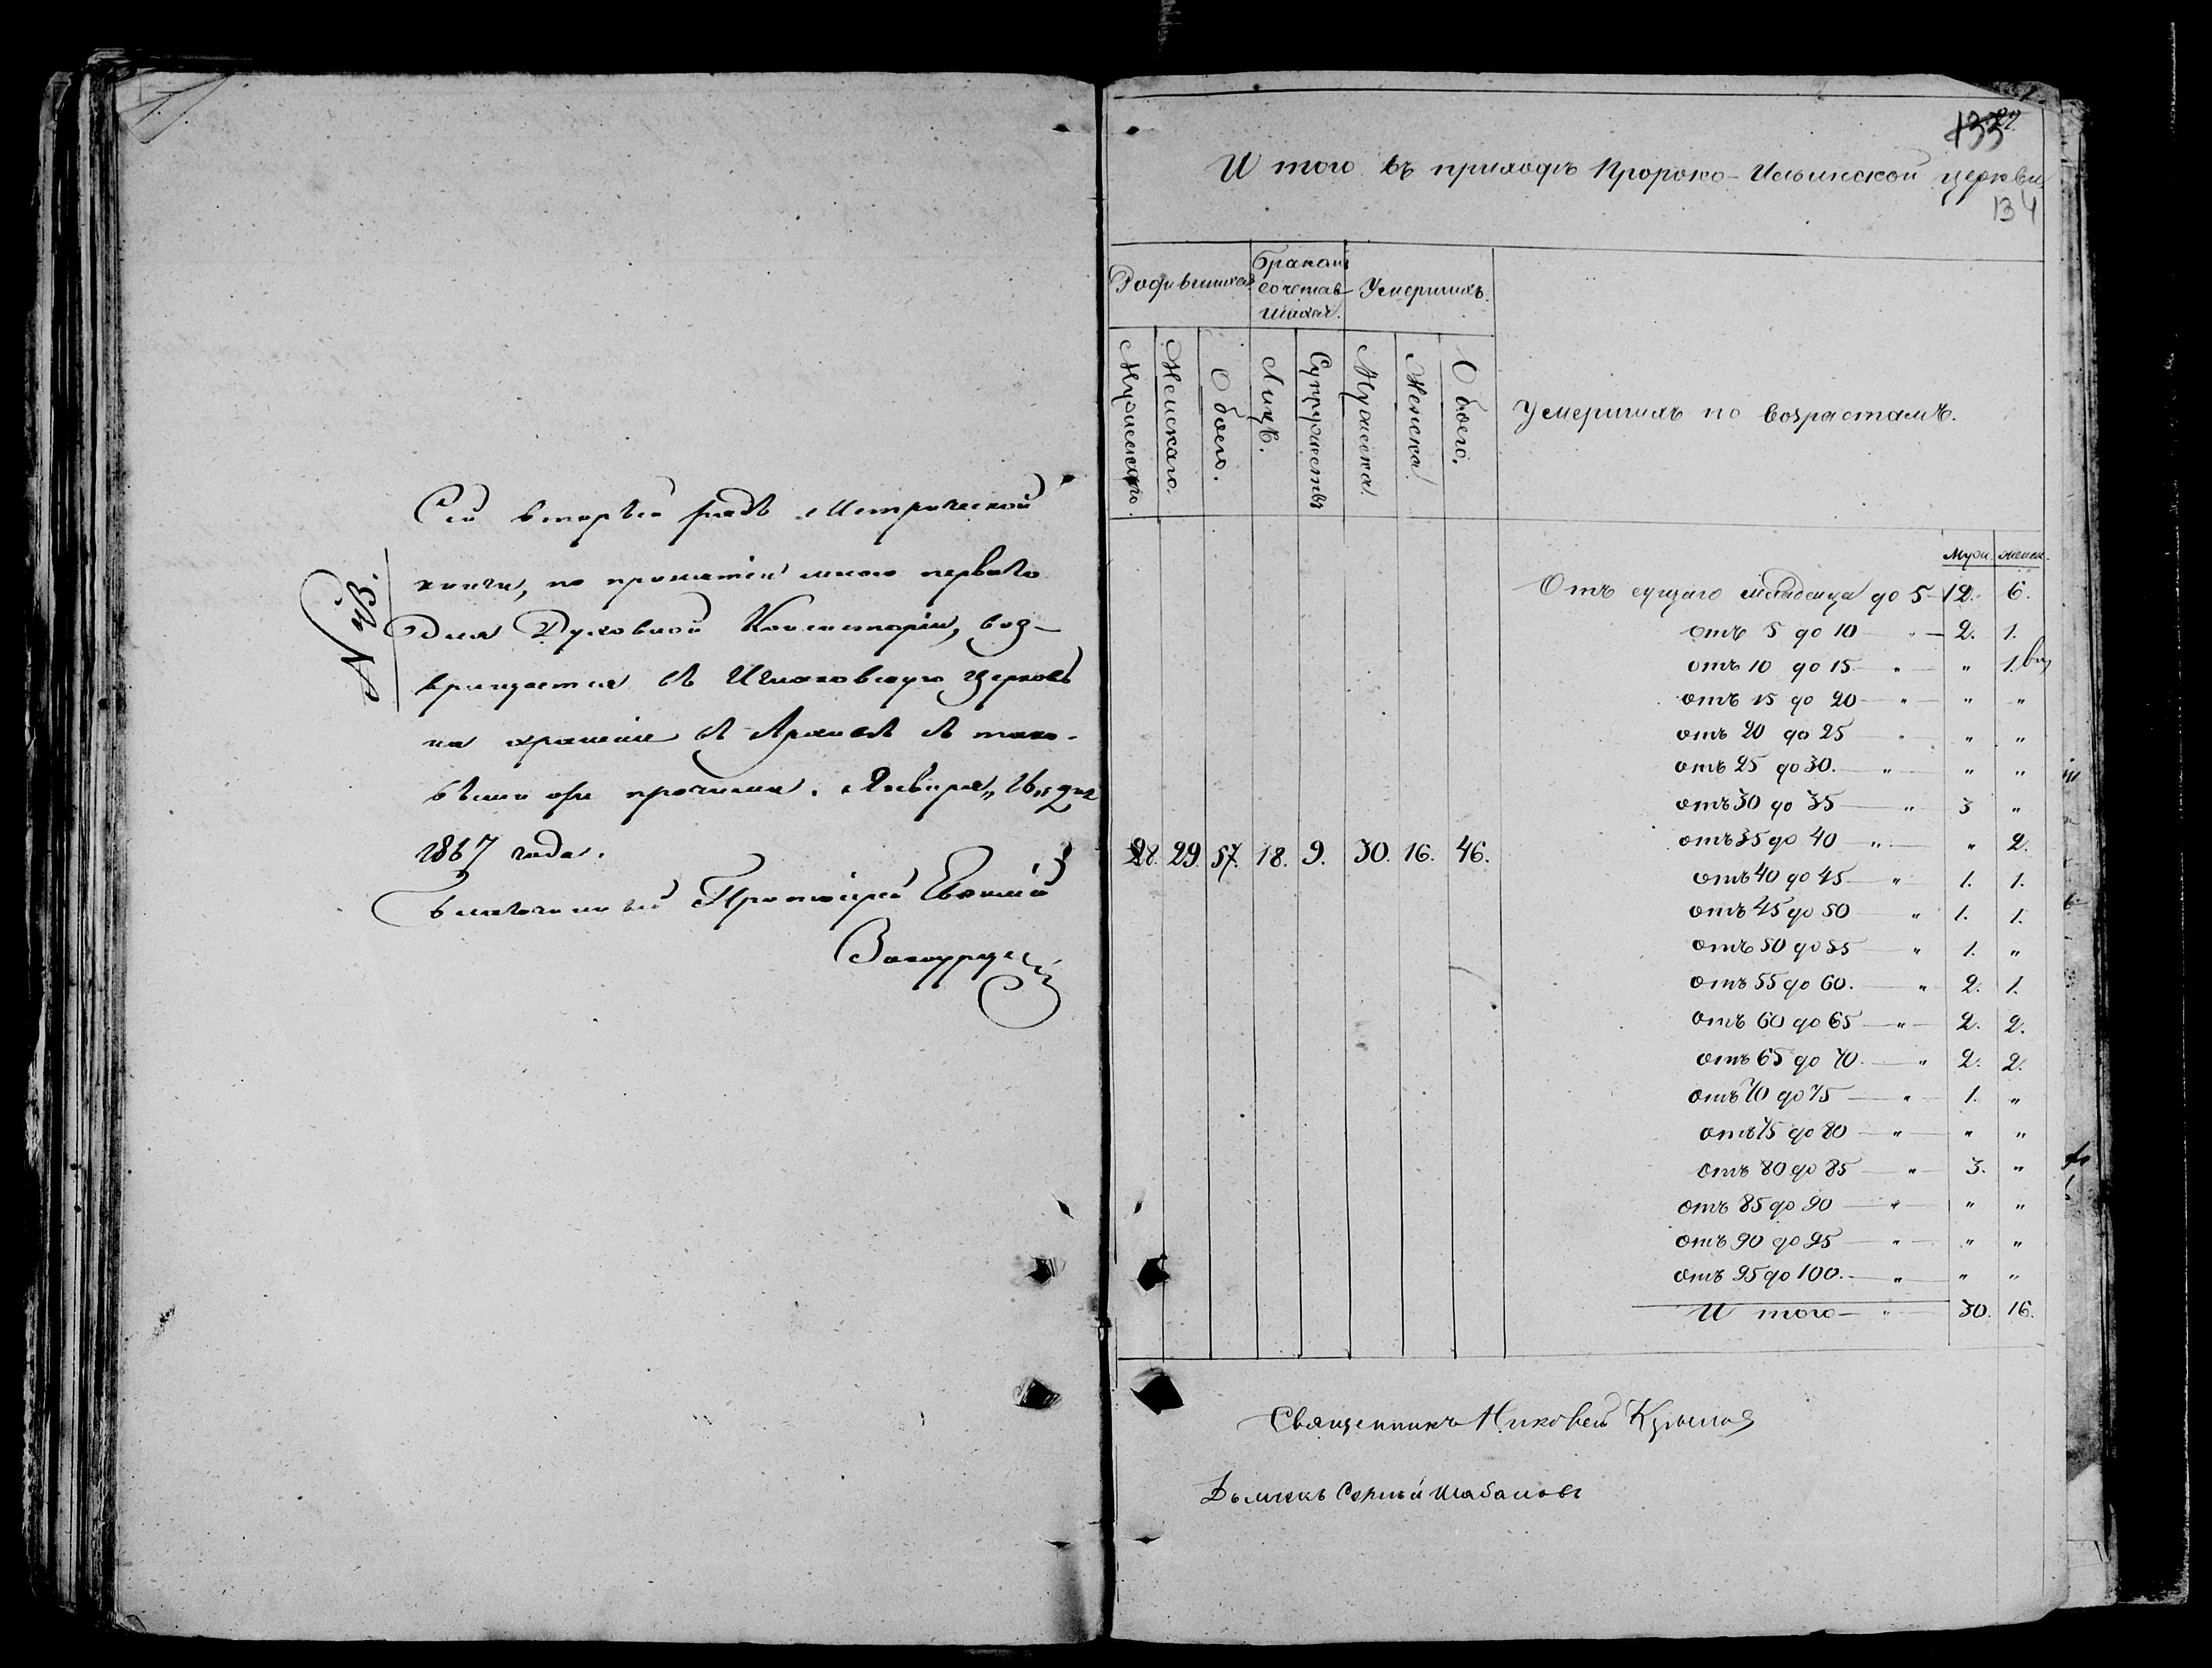 № 43.
Сей вторый экз. Метрической
книги, по принятіи мною перваго
для Духовной Консисторіи, воз-
вращается въ церковь
на храненіе въ Архивѣ съ тако-
выми же прочими. Января „16„ дня
1867 года.
Благочинный Протоіерей Евѳимій
133
И того въ приходѣ Пророко-Ильинской церкви
134
Родившихся.
Бракомъ
сочетав-
шихся.
Умершихъ.
Мужескаго.
Женскаго.
Обоего.
Лицъ.
Супружествъ
Мужеска.
Женска.
Обоего.
Умершихъ по возрастамъ.
Муж. женск.
Отъ сущаго младенца до 5 – 12. 6.
отъ 5 до 10 „ – 2. 1.
отъ 10 до 15 „ – „ 1.
отъ 15 до 20 – „ – „ „
отъ 20 до 25 „ – „ „
отъ 25 до 30. – „ – „ „
отъ 30 до 35 – „ 3 „
отъ 35 до 40 „ – „ 2.
28. 29. 57. 18. 9. 30. 16. 46.
отъ 40 до 45 – „ 1. 1.
отъ 45 до 50 – „ 1. 1.
отъ 50 до 55 – „ 1. „
отъ 55 до 60. – „ 2. 1.
отъ 60 до 65 – „ – 2. 2.
отъ 65 до 70. – „ 2. 2.
отъ 70 до 75 – „ – 1. „
отъ 75 до 80 – „ – „ „
отъ 80 до 85 – „ 3. „
отъ 85 до 90 – „ – „ „
отъ 90 до 95 – „ – „ „
отъ 95 до 100. – „ – „ „
И того – „ – 30. 16.
Священникъ Николай
Дьячекъ Сергѣй Шабановъ